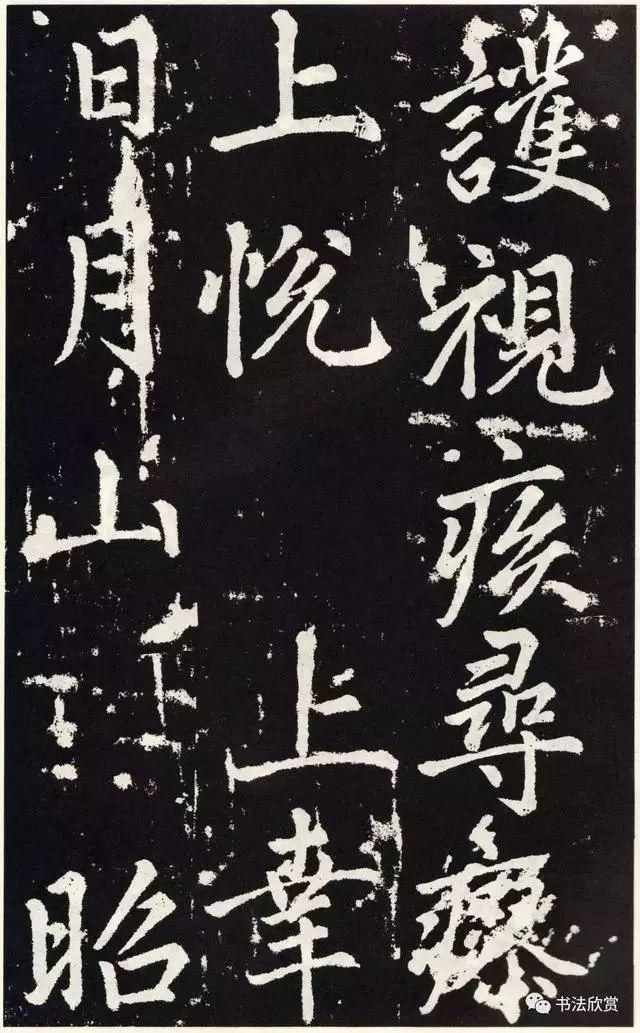 護視疾尋瘳
上悅 上幸
日月山 昭
书法欣赏